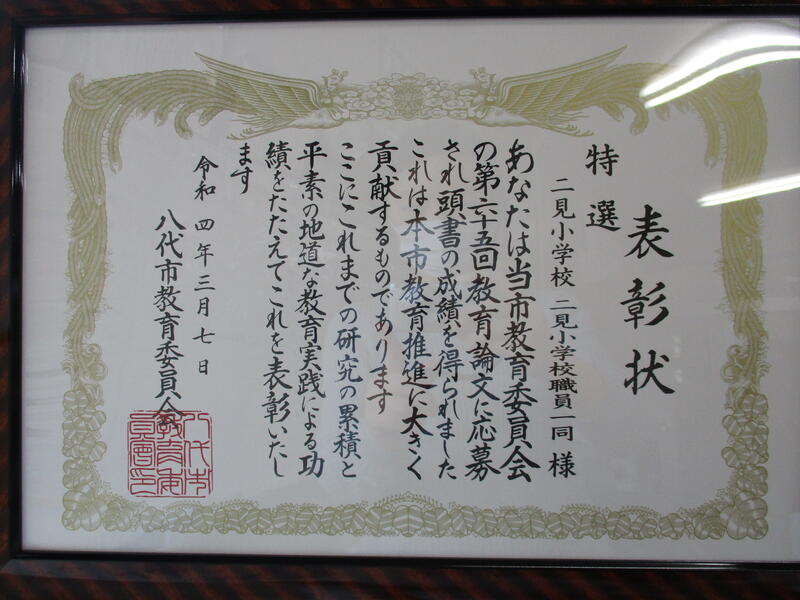 表彰状
特選
二見小学校 二見小学校職員一同 様
あなたは当市教育委員会
の第六十五回教育論文に応募
され頭書の成績を得られました
これは本市教育推進に大きく
貢献するものであります
ここにこれまでの研究の累積と
平素の地道な教育実践による功
績をたたえてこれを表彰いたし
ます
令和四年三月七日
八代市教育委員会
八代市
教育委
員會印